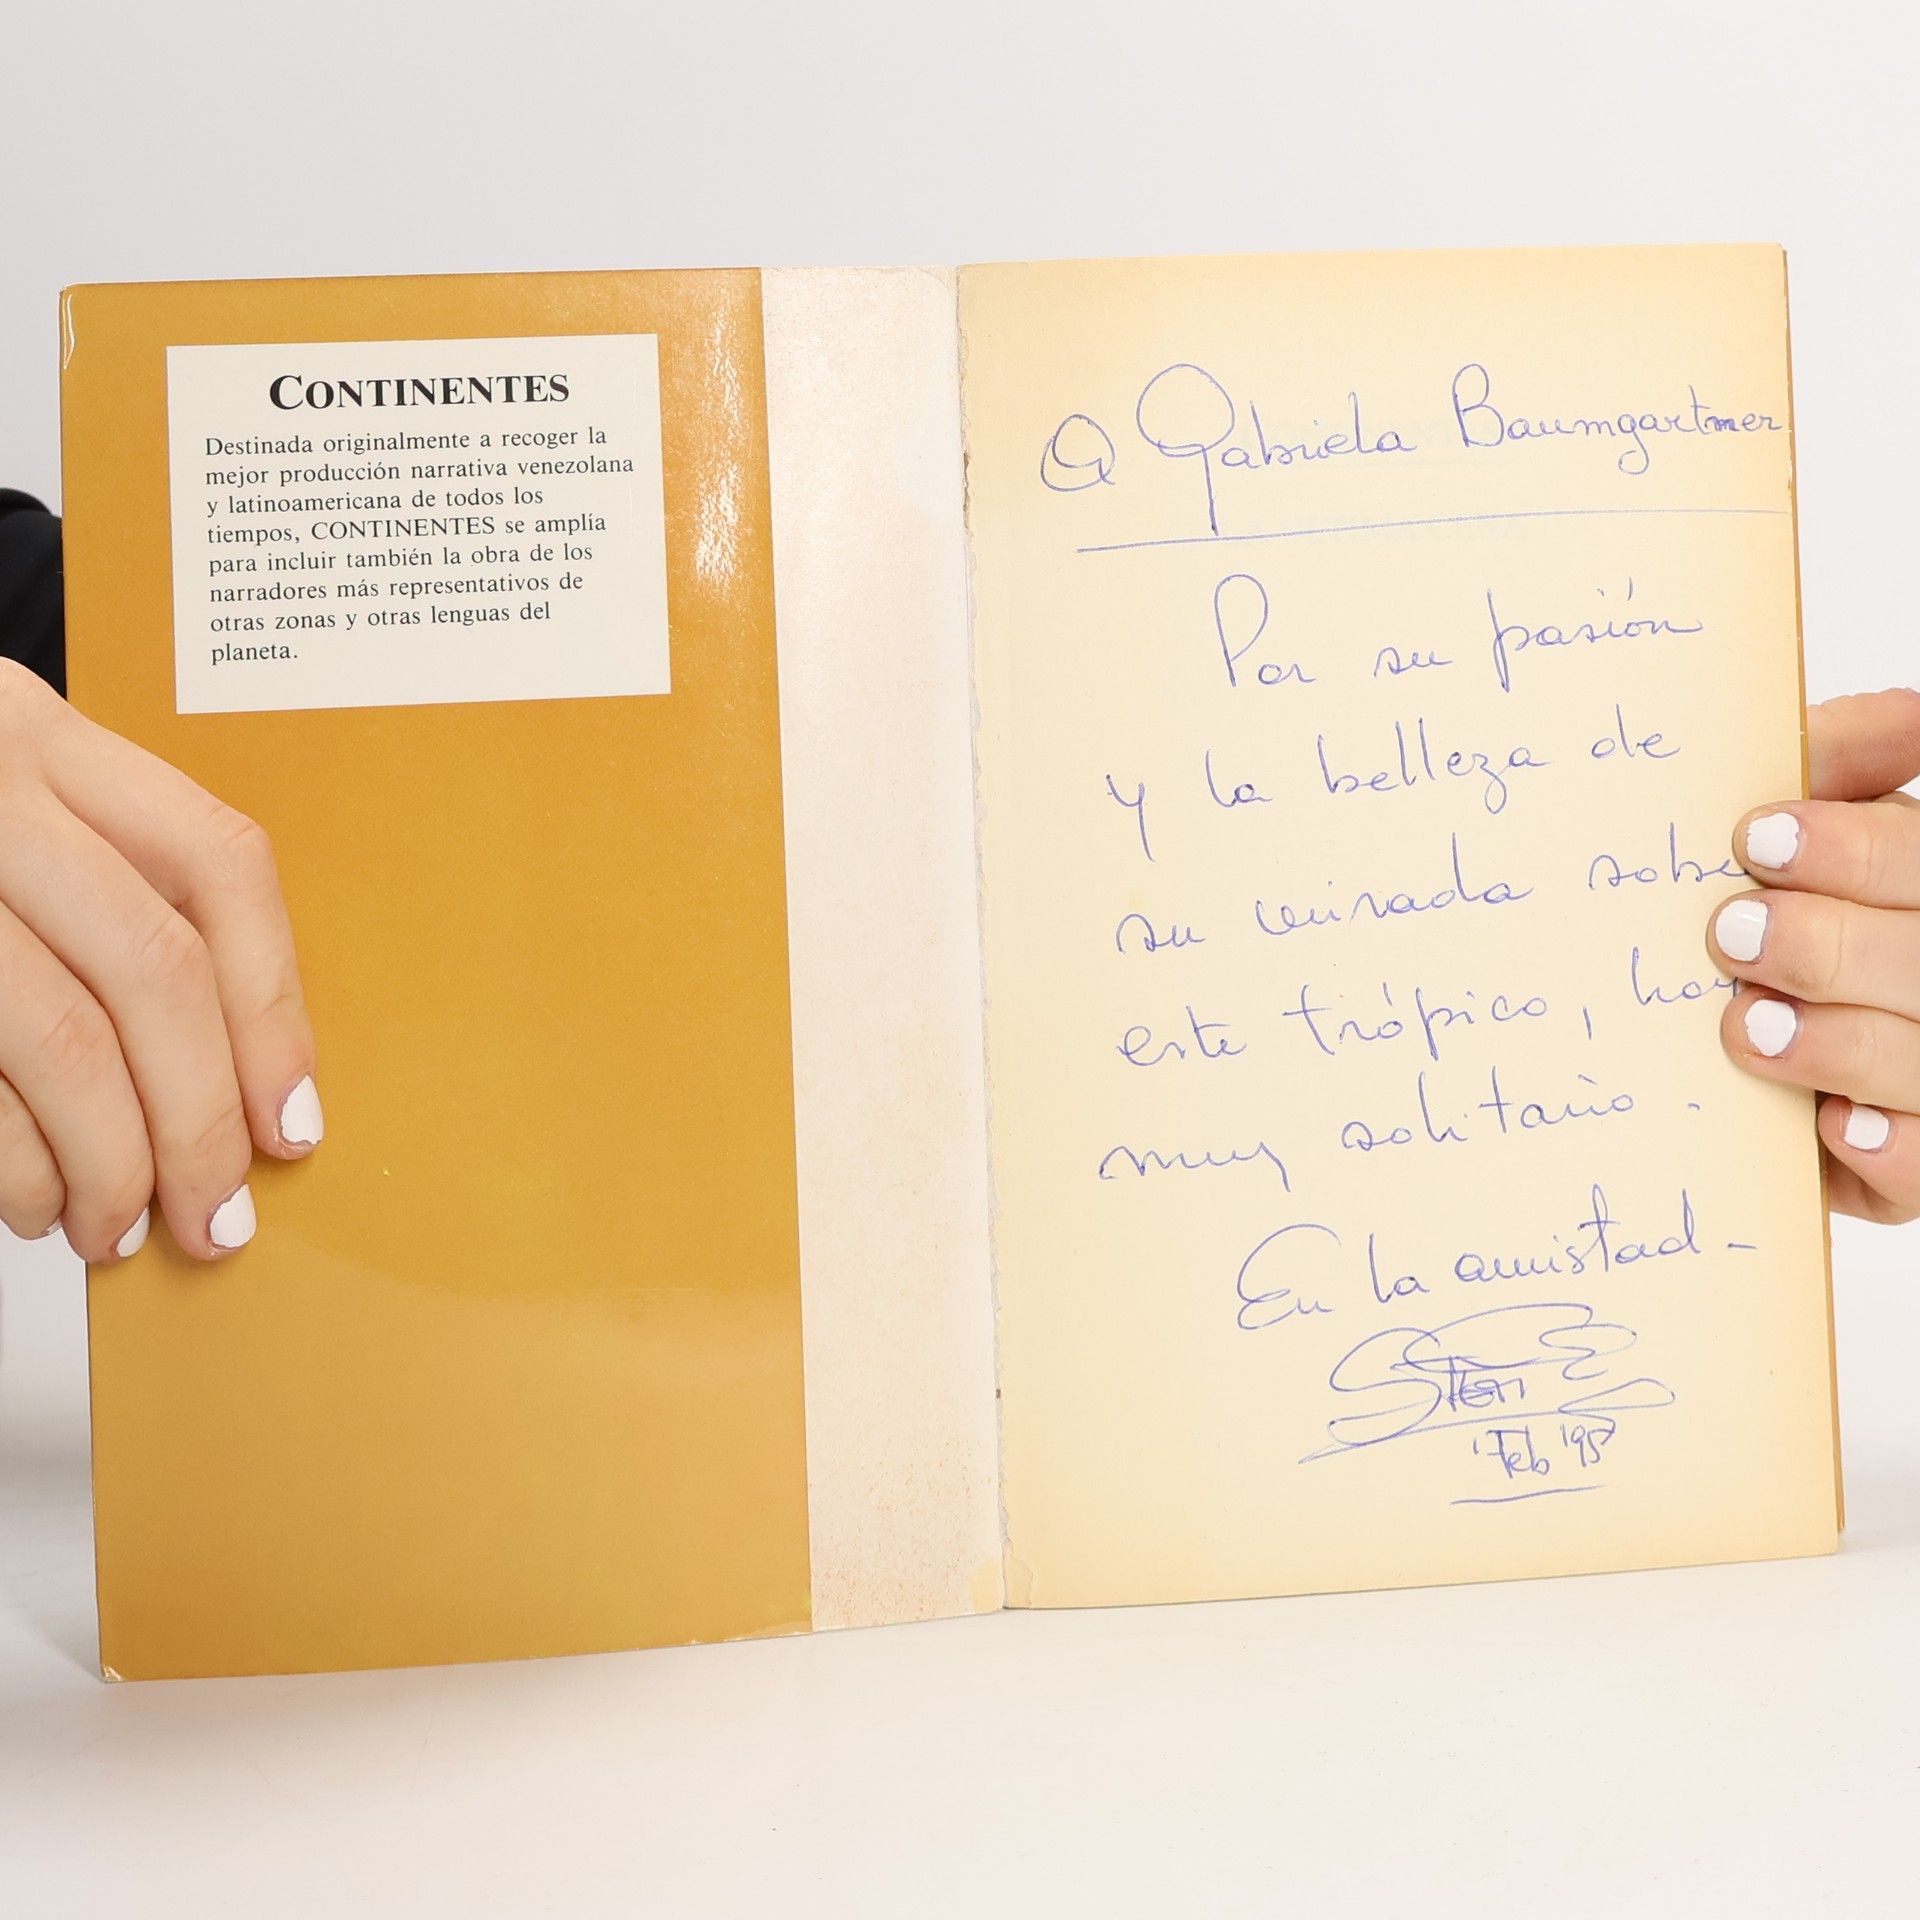 CONTINENTES
Destinada originalmente a recoger la
mejor producción narrativa venezolana
y latinoamericana de todos los
tiempos, CONTINENTES se amplía
para incluir también la obra de los
narradores más representativos de
otras zonas y otras lenguas del
planeta.
A Gabriela Baumgartner
Por su pasión
y la belleza de
su mirada sobre
este trópico, hoy
muy solitario.
En la amistad -
Feb '95